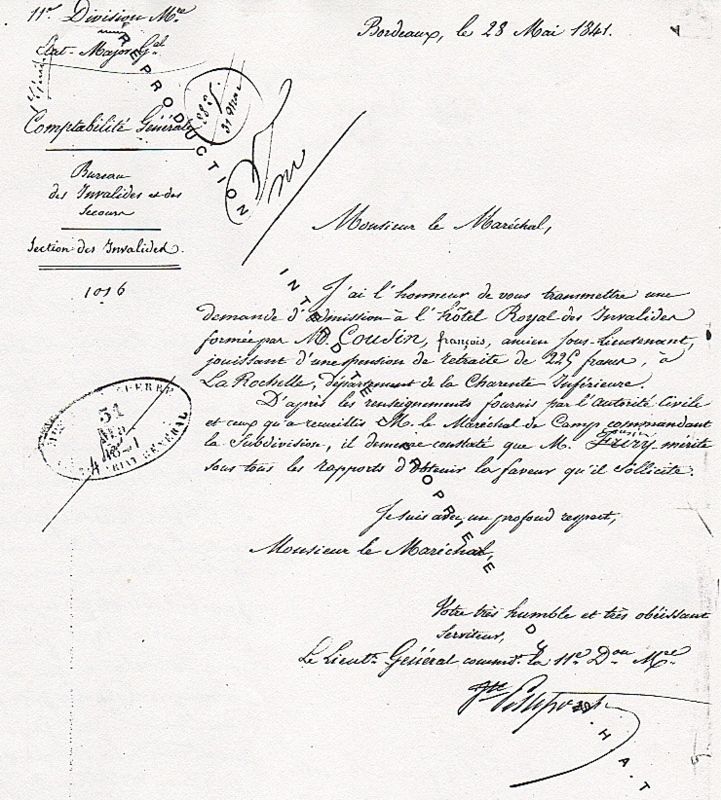 11e. Division Mre.
Etat-Major Gal.
Comptabilité Générale
Bureau
des Invalides et des
Secours
Section des Invalides.
1016
Bordeaux, le 28 Mai 1841.
31 Mai
REPRODUCTION
INTERDITE
PROPRIETE
D
S.H.A.T
Monsieur le Maréchal,
J'ai l'honneur de vous transmettre une
demande d'admission à l'hôtel Royal des Invalides
formée par M. Cousin, françois, ancien Sous-Lieutenant,
jouissant d'une pension de retraite de 225 francs, à
La Rochelle, département de la Charente Inférieure.
D'après les renseignements fournis par l'autorité Civile
et ceux qu'a recueillis M. le Maréchal de Camp commandant
la Subdivision, il demeure constaté que M. Cousin mérite
sous tous les rapports d'obtenir la faveur qu'il sollicite.
Je suis avec un profond respect,
Monsieur le Maréchal,
Votre très humble et très obéissant
Serviteur,
Le Lieutt. Général commt. la 11e. Don. Mre.
GUERRE
31
GÉNÉRAL